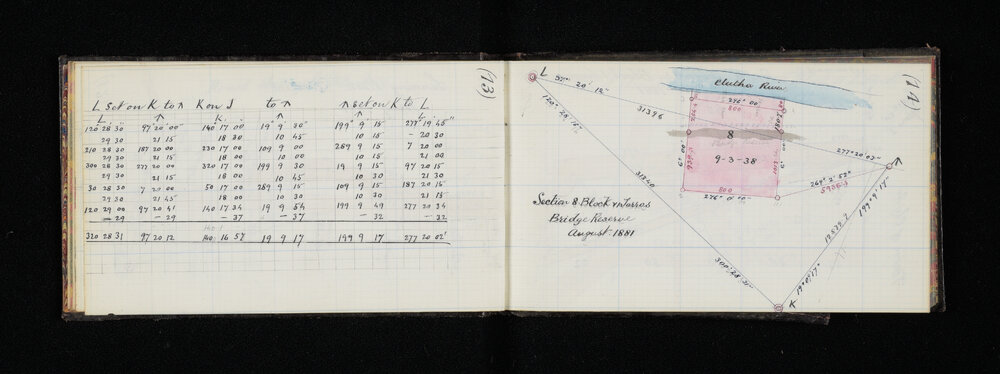 (13)
L Set on K to ↑ K on J to ↑ ↑ set on K to L
L ↑ K. ↑ ↑ L
120 28 30 97 20 00" 140 17 00 19° 9 20" 199° 9 15 277 19 45"
29 30 21 15 18 30 10 45 10 15 - 20 30
210 28 30 187 20 00 230 17 00 109 9 00 289 9 15 7 20 00
29 30 21 15 18 00 10 00 10 15 21 00
300 28 30 277 20 00 320 17 00 199 9 30 19 9 15 97 20 15
29 30 21 15 18 00 10 45 10 30 21 30
30 28 30 7 20 00 50 17 00 289 9 15 109 9 15 187 20 15
29 30 21 45 18 00 10 30 10 30 21 15
120 29 00 97 20 41 140 17 34 19 9 54 199 9 49 277 20 34
- 29 - 29 - 37 - 37 - 32 - 32
320 28 31 97 20 12 140 16 57 19 9 17 199 9 17 277 20 02"
(14)
L 97° 20' 12"
Clutha River
276° 00'
800
120° 28' 31"
31396
8
277° 20' 02"
9-3-38
939.7
6° 00'
6° 00'
269° 2' 52"
5905.3
31340
800
276° 0' 0"
199° 9' 17"
Section 8 Block
Bridge Reserve
August 1881
300° 28' 31"
19° 9' 17"
K